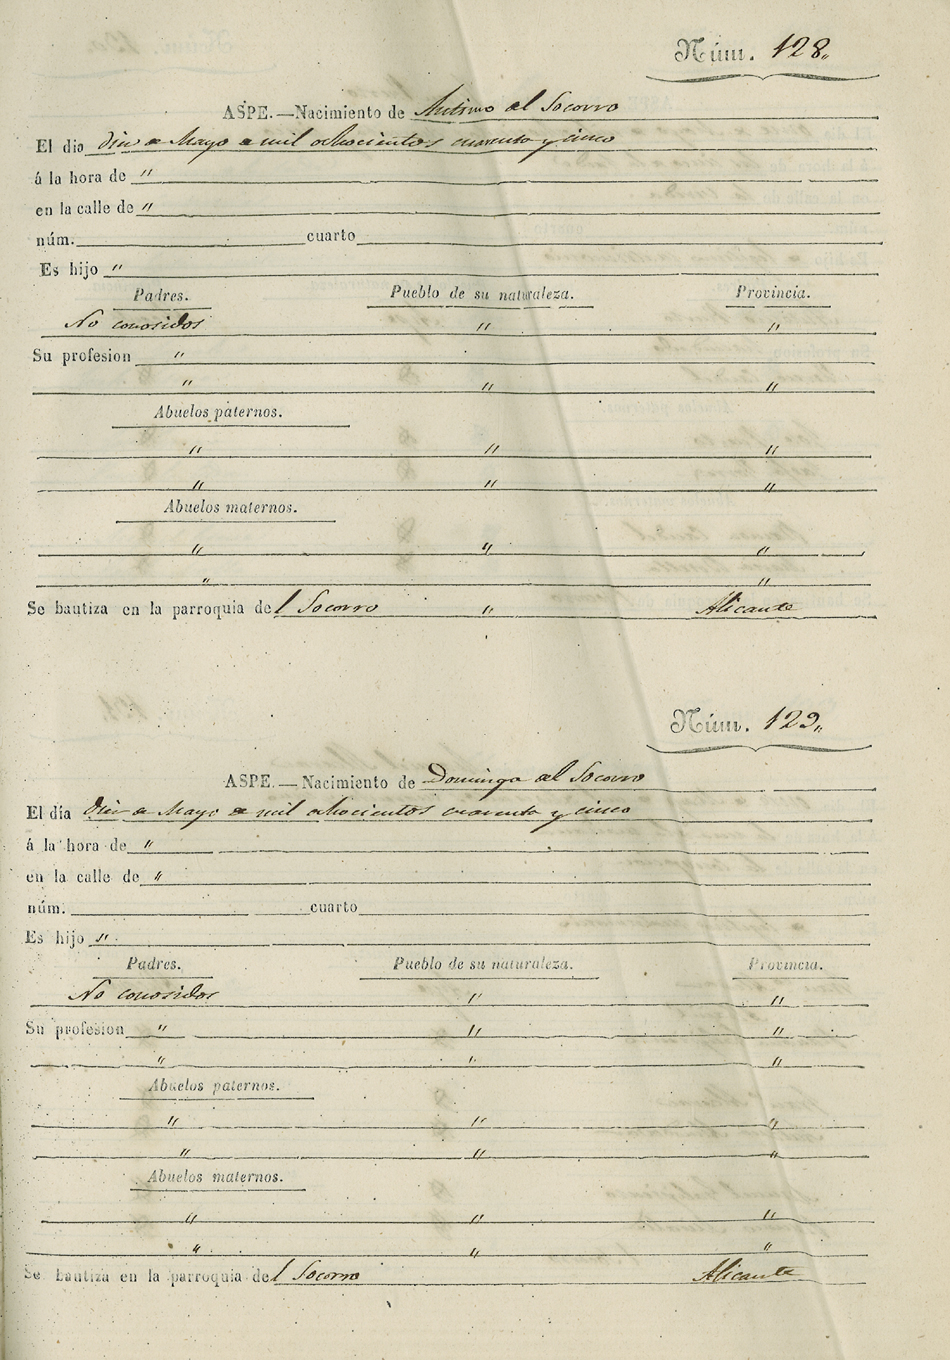 Núm. 128.
ASPE.—Nacimiento de Antimo del Socorro
El dia diez de Mayo de mil ochocientos cuarenta y cinco
á la hora de "
en la calle de "
núm. cuarto
Es hijo "
Padres. Pueblo de su naturaleza. Provincia.
No conosidos " "
Su profesion "
" " "
Abuelos paternos.
" " "
" " "
Abuelos maternos.
" " "
" "
Se bautiza en la parroquia del Socorro " Alicante
Núm. 129.
ASPE.—Nacimiento de Dominga del Socorro
El día diez de Mayo de mil ochocientos cuarenta y cinco
á la hora de "
en la calle de "
núm. cuarto
Es hijo "
Padres. Pueblo de su naturaleza. Provincia.
No conosidos " "
Su profesion " " "
" " "
Abuelos paternos.
" " "
" " "
Abuelos maternos.
" " "
" " "
Se bautiza en la parroquia del Socorro Alicante